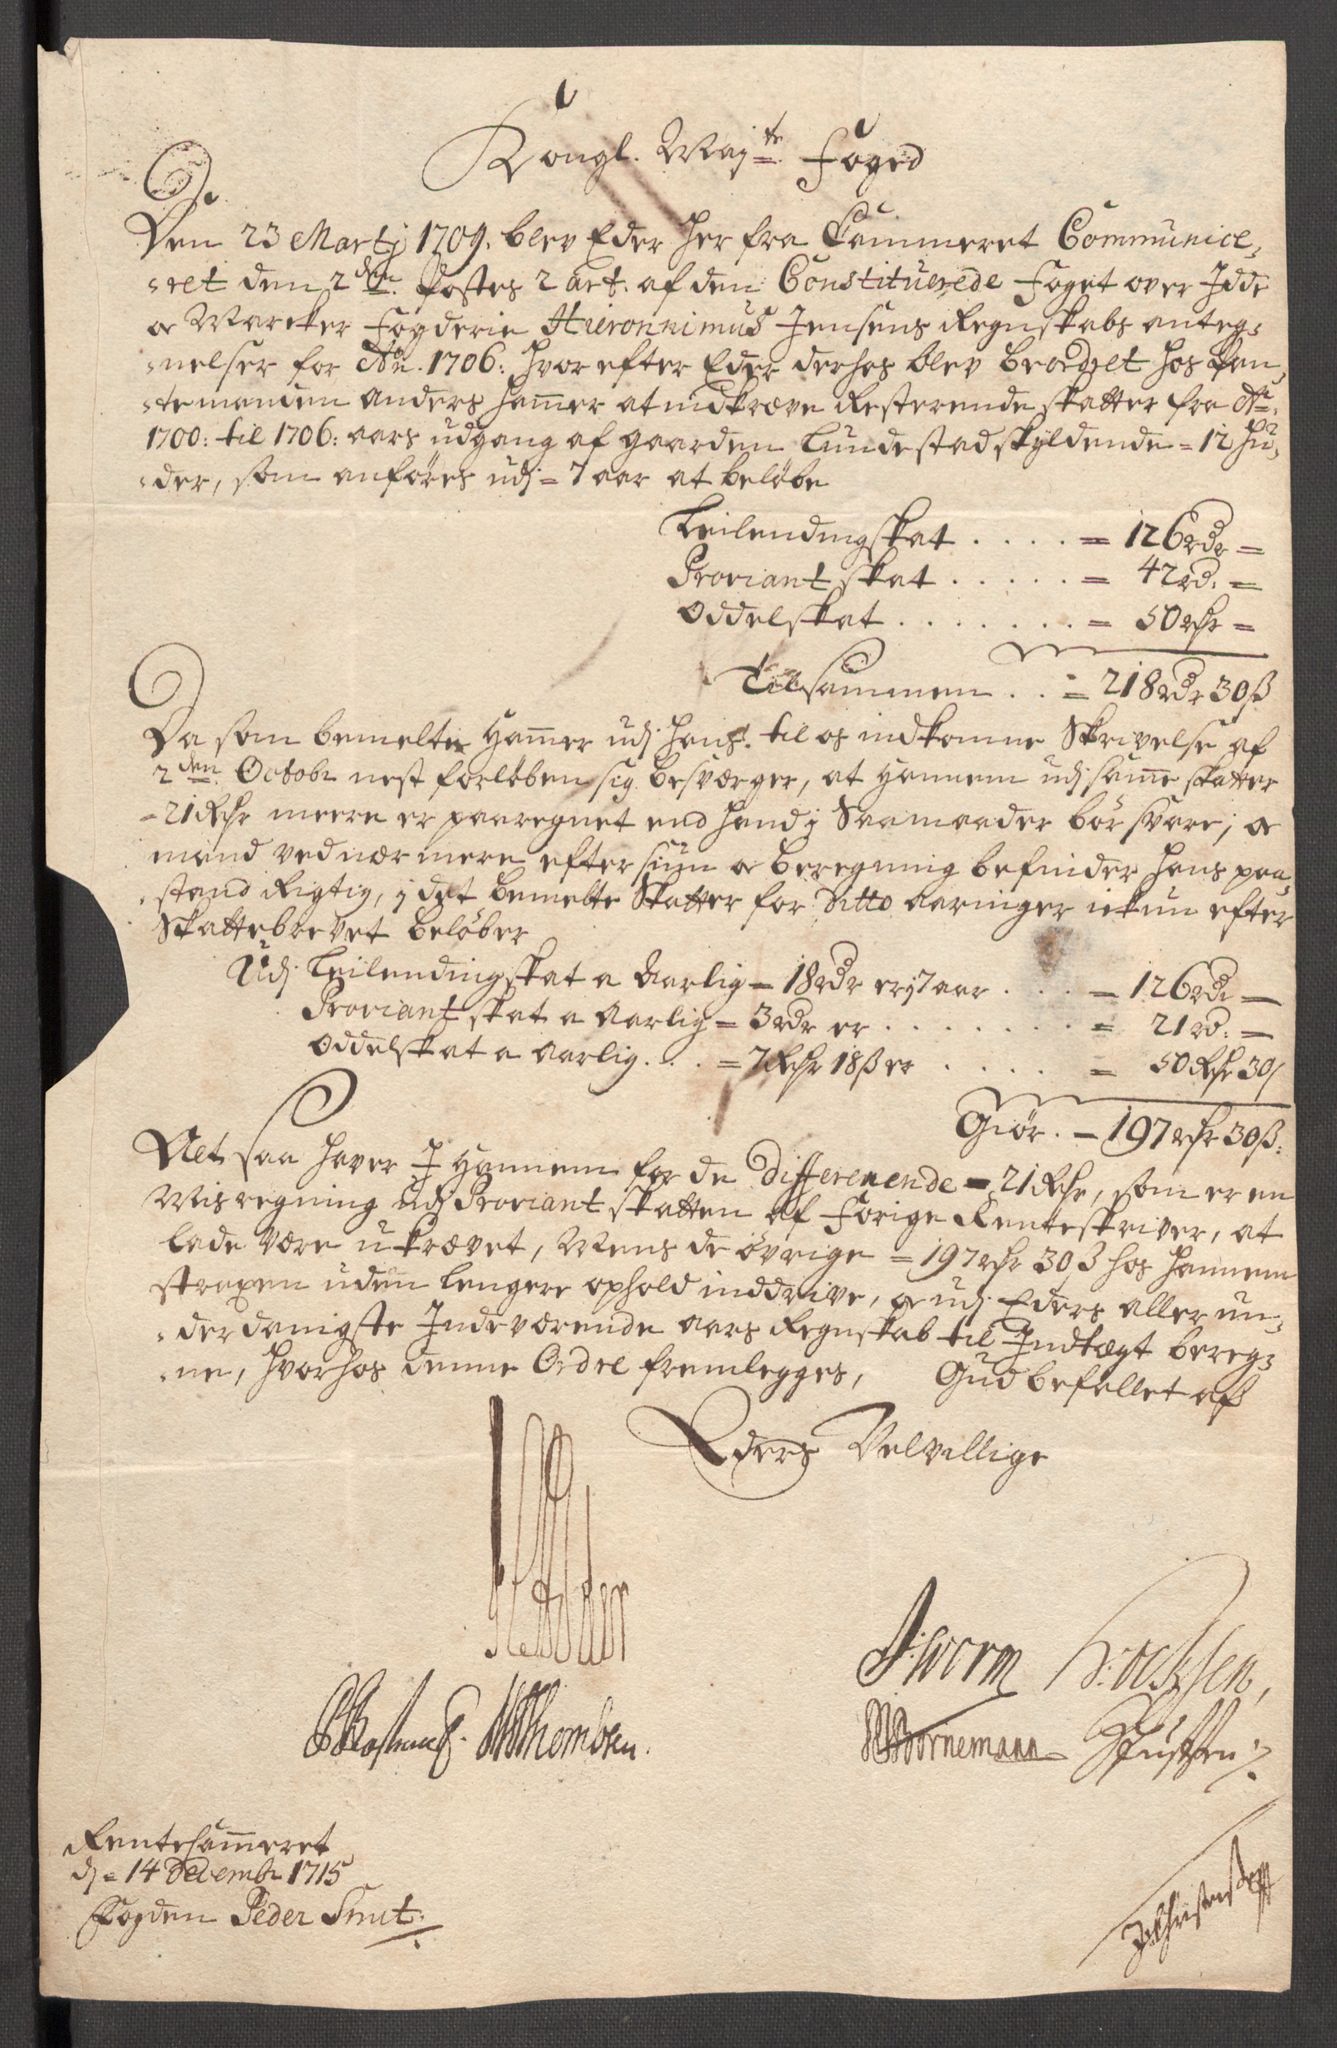 Kongl. Maj.te Foged
Den 23 Martij 1709. blev Eder her fra Cammeret Communice,,
,,ret den 2den Postes 2 art. af den Constituerede Foget over Idde
og Marcker Fogderie Hieronnimus Jensens Regnskabs anteg,,
,,nelser for Ao. 1706: hvor efter Eder derhos blev beordret hos
manden Anders Hamer at indkræve Resterende skatter fra Ao.
1700: til 1706: aars udgang af gaarden Lundestad skyldende = 12 Hu,,
,,der, som anføres udj = 7 aar at beløbe
Leilendingskat . . . . = 126 rdr =
Proviantskat . . . . . = 42 rd. =
Oddelskat . . . . . . . = 50 rdr =
Tilsammen . . = 218 rdr 30 ß
Da som bemelte Hamer udj hans til os indkomne Skrivelse af
2den Octobr nest forløben sig besværger, at hannem udj samme skatter
= 21 Rdr meere er paaregnet end hand j Saamaader bør svare; og
mand ved nærmere eftersiun og beregning befinder hans paa,,
,,stand Rigtig, j det bemelte Skatter for ditto aaringer ickun efter
Skattebrevet beløber
Udj Leilendingskat a Aarlig = 18 rdr er j 7 aar . . . = 126 rdr =
Proviantskat a Aarlig = 3 rdr er . . . . . . . = 21 rd. =
Oddelskat a Aarlig . . . = 7 Rdr 18 ß er . . . . . = 50 Rdr 30 ß
Giør . = 197 rdr 30 ß.
Alt saa haver I hannem for de differerende = 21 Rdr, som er en
Misregning udj Proviantskatten af forige Renteskriver, at
lade være ukrævet, Mens de øvrige = 197 rdr 30 ß hos hannem
straxen uden lengere ophold inddrive, og udj Eders aller un,,
,,derdanigste Indeværende aars Regnskab til Indtægt bereg,,
,,ne, hvorhos denne Ordre fremlegges, Gud befallet af
Eders Velvillige
J. Worm
WThombsen.
Bornemann
Rentecammeret
dj = 14 Decembr 1715
Fogden Peder Smit.